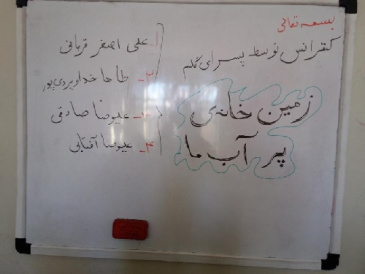 بسمه تعالی
کنفرانس توسط پسرای گلم
زمین خانه‌ی
پر آب ما
۱ـ علی اصغر قربانی
۲ـ طاها خداویردی پور
۳ـ علیرضا صادقی
۴ـ علیرضا آفتابی